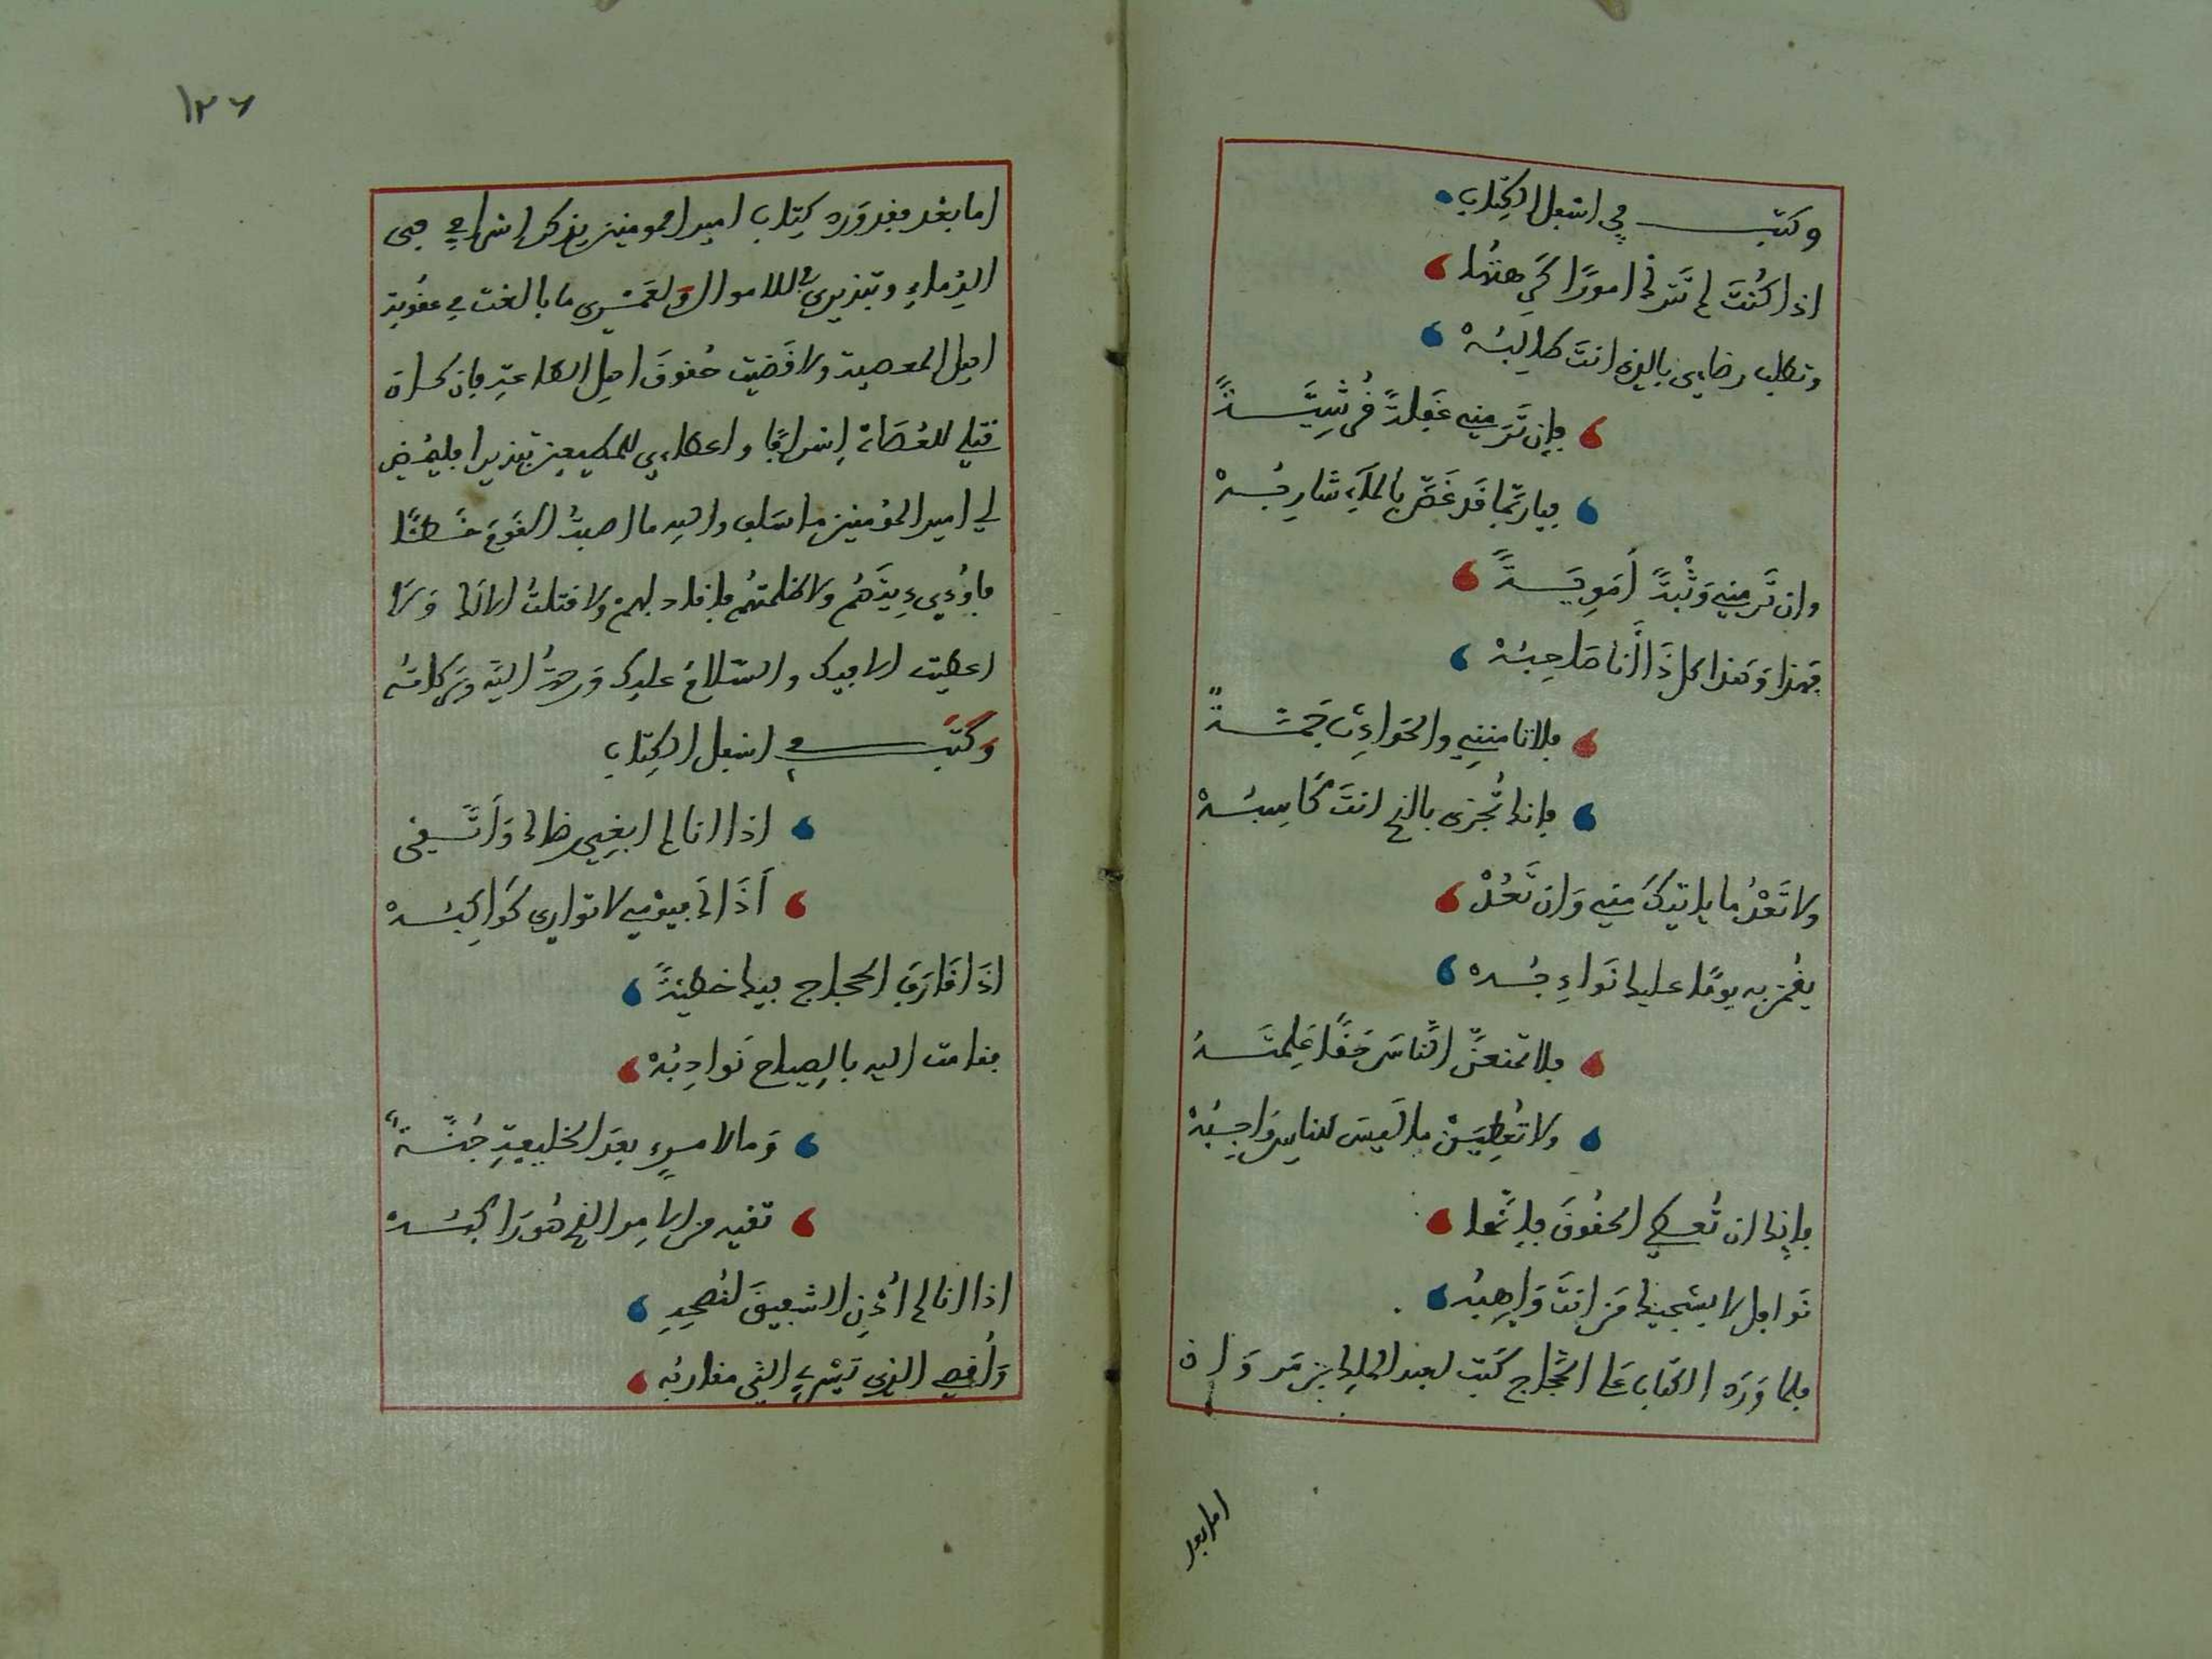 وكتب في اسفل الكتاب
اذا كُنتَ لم تَترك امورًا كَرِهتُها
وتطلب رضاءي بالذي انتَ طالبُهْ
فإن تَرَ مني غَفلةً قُرشيَّةً
فيا ربّما قد غَصَّ بالمآءِ شاربُهْ
وان تَر مني وَثْبةً أَمَوِيَّةً
فهذا وَهَذا كل ذَا أنا صاحِبُهْ
فلا تامننِي والحَواءِث جَمَّةٌ
فإنك تُجزى بالذي انتَ كَاسِبُهْ
ولا تَعْدُ ما ياتيكَ مني وَان تَعُدْ
يقُمن به يومًا عليك نَواءِبُه
فلا تمنعنَّ النَّاسَ حَقًّا عَلِمتَهُ
ولا تُعطِيَنْ ما ليسَ للناسِ وَاجِبُهْ
فإنك ان تُعطي الحقُوقَ فإنّما
نَوافل لا يشجيك مَن انتَ وَاهِبُه
فلما وَرَد الكتاب عَلى الحجَّاج كَتب لعبد الملك بن مَروَان
اما بعد
١٢٦
اما بَعْد فقد وَرد كِتاب امير المومنين يذكر إسرافي في
الدِّماءِ وتبذيري في الاموال ولعَمْرِي ما بالغت في عقُوبة
اهل المعصية ولا قَضيت حُقوقَ اهل الطاعةِ فإن كان
قتلي للعُصَاة إسرافًا واعطاءي للمطيعين تبذيرا فليُمض
لي امير المؤمنين ما سَلف والله ما اصبتُ القَومَ خَطئًا
فأوُءدي دِيتَهُم ولا ظلمتهُم فأقاد بهم ولا قتلتُ الا لك وَلا
اعطيت الا فيك والسّلامُ عليك وَرحمةُ اللّه وبَركاتُه
وَكَتَب في اسفل الكِتاب
اذا انا لم ابغِي رضاك وَأتَّقي
أَذَاكَ فيَوْمي لا توارى كَوَاكِبُهْ
اذَا قَارَفَ الحجاج فيك خطيئةً
فقامت اليه بالصِياح نَوادِبُهْ
وَما لامرءٍ بعدَ الخليفةِ جُنّةٌ
تقيه من الامر الذي هُوَ راكبُهْ
اذا انا لم أُدْنِ الشفيقَ لنُصْحِهِ
وَأُقصي الذي تَسْري الي عقاربُه